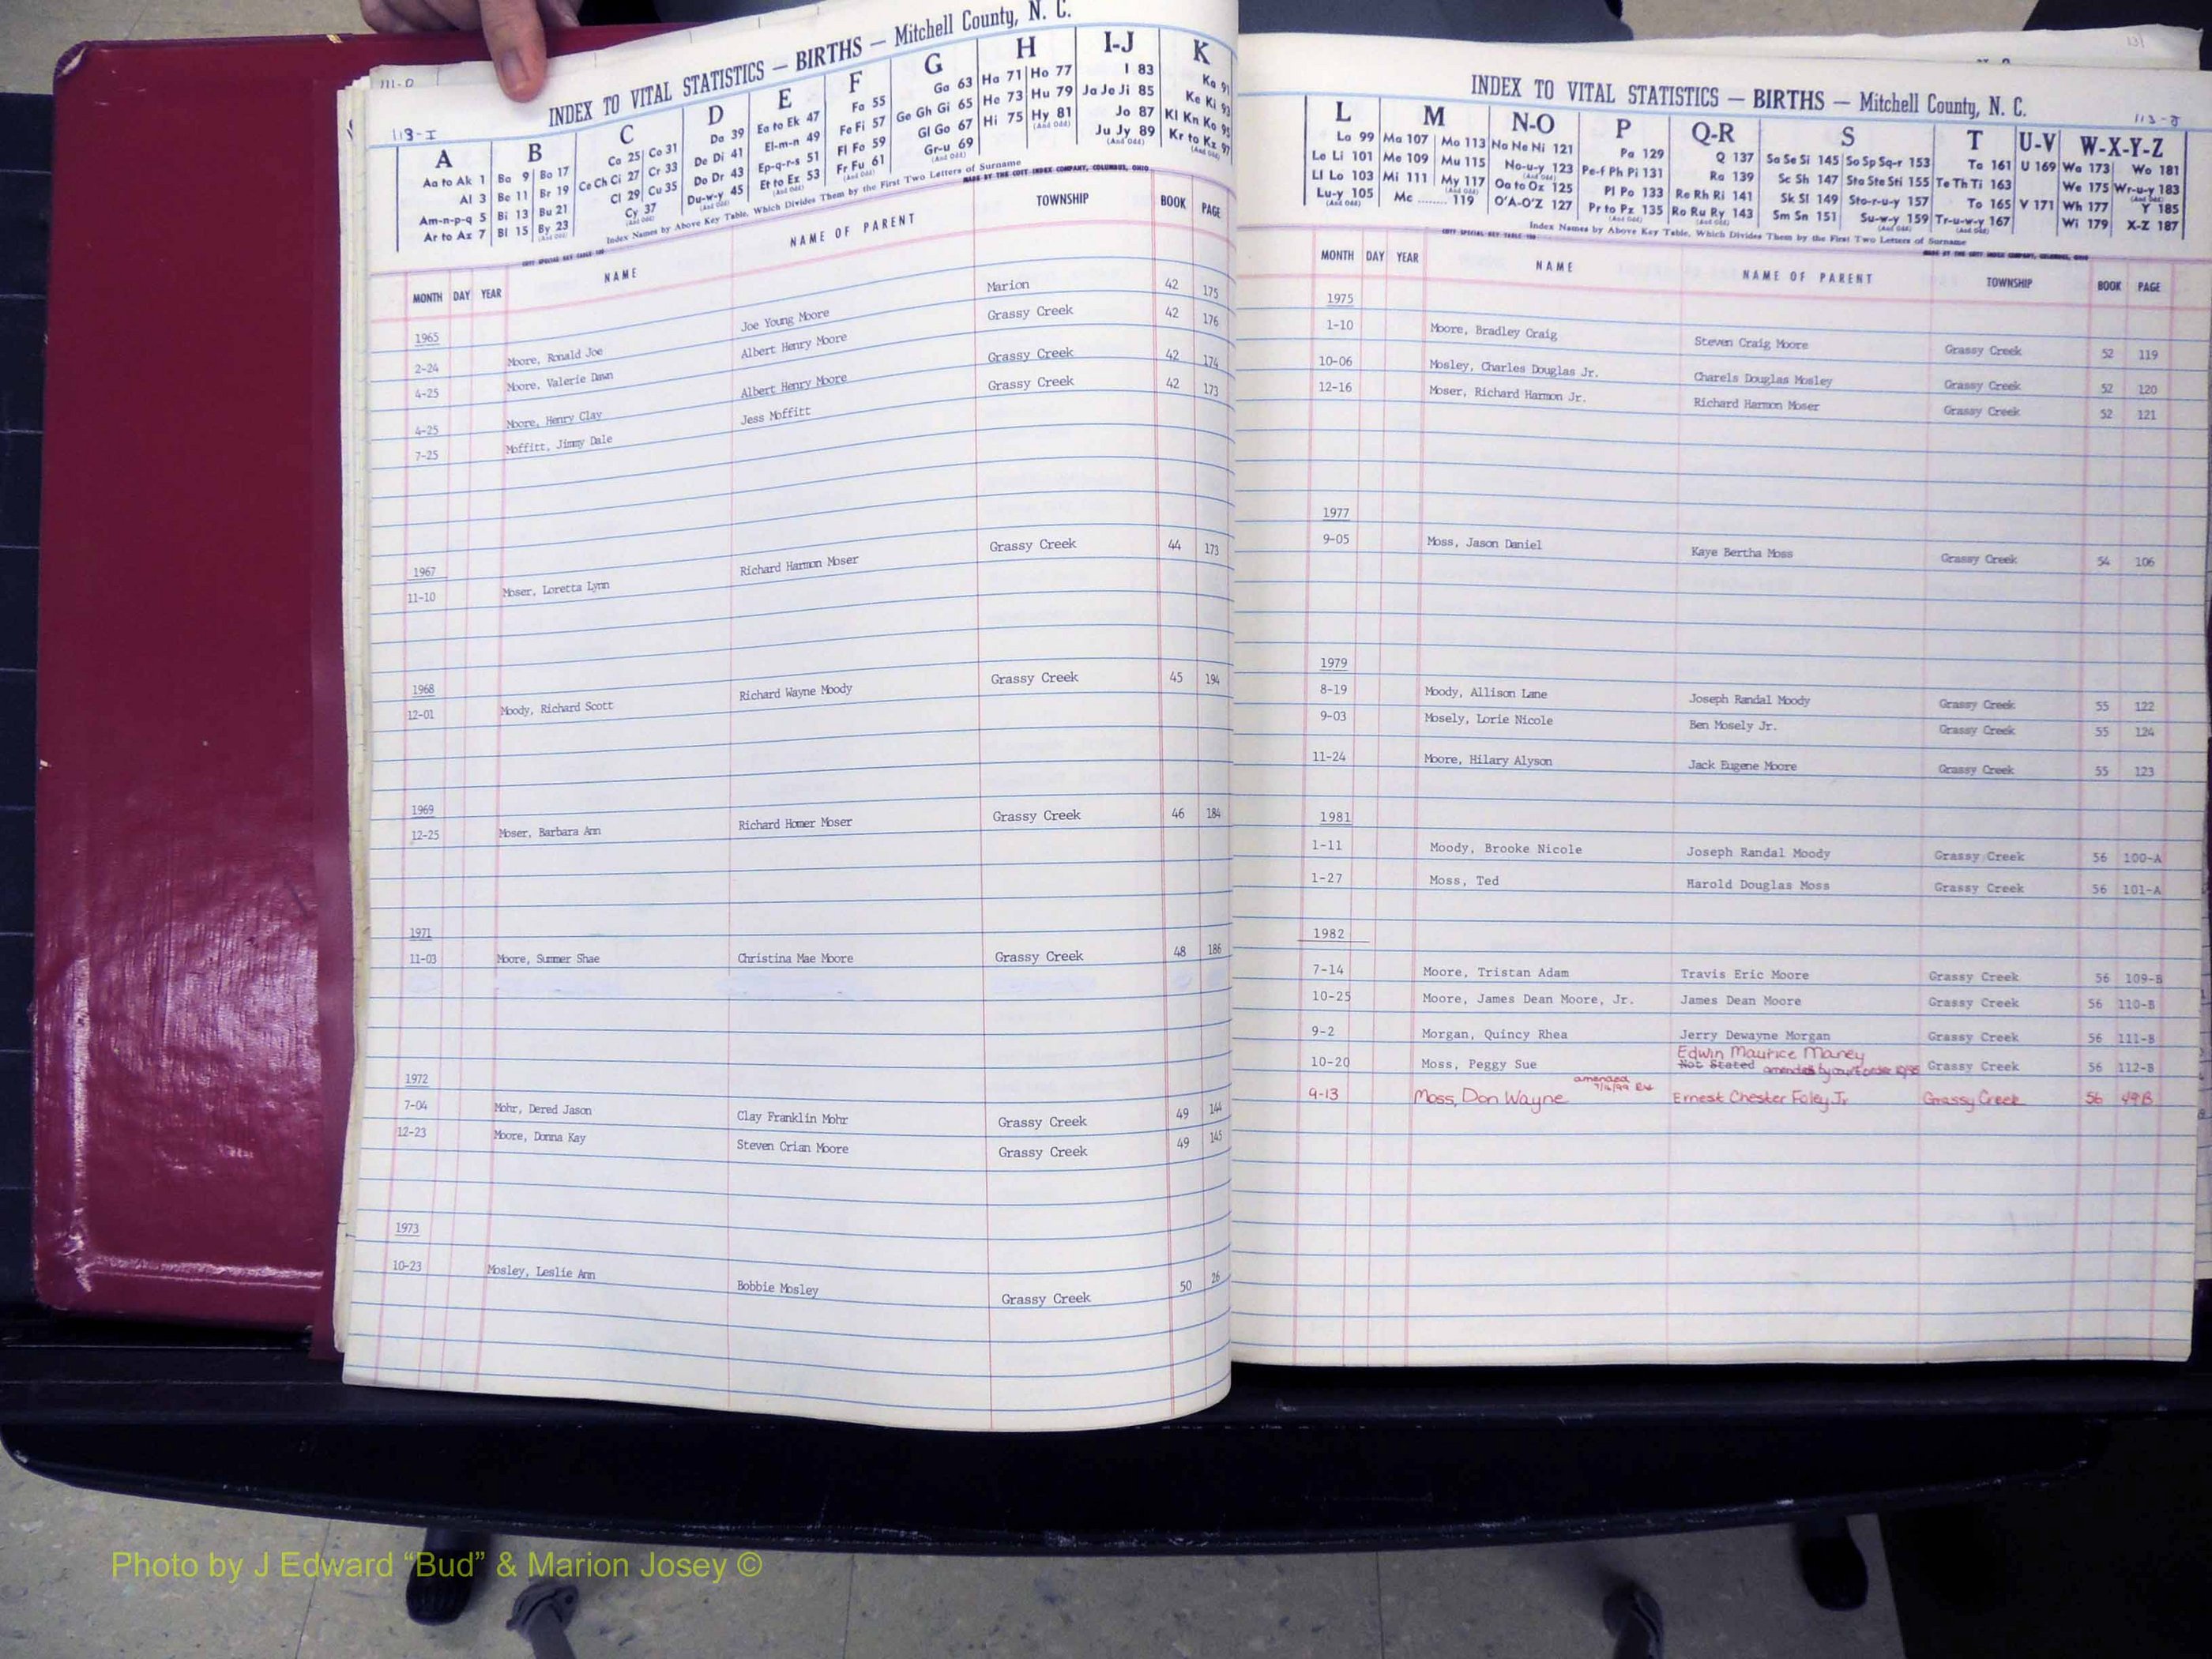 113-I
INDEX TO VITAL STATISTICS — BIRTHS — Mitchell County, N. C.
A
Aa to Ak 1
Al 3
Am-n-p-q 5
Ar to Az 7
B
Ba 9 Bo 17
Be 11 Br 19
Bi 13 Bu 21
Bl 15 By 23
(And Odd)
C
Ca 25 Co 31
Ce Ch Ci 27 Cr 33
Cl 29 Cu 35
Cy 37
(And Odd)
D
Da 39
De Di 41
Do Dr 43
Du-w-y 45
(And Odd)
E
Ea to Ek 47
El-m-n 49
Ep-q-r-s 51
Et to Ex 53
F
Fa 55
Fe Fi 57
Fl Fo 59
Fr Fu 61
(And Odd)
G
Ga 63
Ge Gh Gi 65
Gl Go 67
Gr-u 69
(And Odd)
H
Ha 71 Ho 77
He 73 Hu 79
Hi 75 Hy 81
(And Odd)
I-J
I 83
Ja Je Ji 85
Jo 87
Ju Jy 89
(And Odd)
K
Ka 91
Ke Ki 93
Kl Kn Ko 95
Kr to Kz 97
(And Odd)
Index Names by Above Key Table, Which Divides Them by the First Two Letters of Surname
COTT SPECIAL KEY TABLE
MADE BY THE COTT INDEX COMPANY, COLUMBUS, OHIO
MONTH DAY YEAR NAME NAME OF PARENT TOWNSHIP BOOK PAGE
1965
2-24 Moore, Ronald Joe Joe Young Moore Marion 42 175
4-25 Moore, Valerie Dawn Albert Henry Moore Grassy Creek 42 176
4-25 Moore, Henry Clay Albert Henry Moore Grassy Creek 42 174
7-25 Moffitt, Jimmy Dale Jess Moffitt Grassy Creek 42 173
1967
11-10 Moser, Loretta Lynn Richard Harmon Moser Grassy Creek 44 173
1968
12-01 Moody, Richard Scott Richard Wayne Moody Grassy Creek 45 194
1969
12-25 Moser, Barbara Ann Richard Homer Moser Grassy Creek 46 184
1971
11-03 Moore, Summer Shae Christina Mae Moore Grassy Creek 48 186
1972
7-04 Mohr, Dered Jason Clay Franklin Mohr Grassy Creek 49 144
12-23 Moore, Donna Kay Steven Crian Moore Grassy Creek 49 145
1973
10-23 Mosley, Leslie Ann Bobbie Mosley Grassy Creek 50 26
113-J
INDEX TO VITAL STATISTICS — BIRTHS — Mitchell County, N. C.
L
La 99
Le Li 101
Ll Lo 103
Lu-y 105
(And Odd)
M
Ma 107 Mo 113
Me 109 Mu 115
Mi 111 My 117
(And Odd)
Mc ........ 119
N-O
Na Ne Ni 121
No-u-y 123
(And Odd)
Oa to Oz 125
O'A-O'Z 127
P
Pa 129
Pe-f Ph Pi 131
Pl Po 133
Pr to Pz 135
(And Odd)
Q-R
Q 137
Ra 139
Re Rh Ri 141
Ro Ru Ry 143
(And Odd)
S
Sa Se Si 145 So Sp Sq-r 153
Sc Sh 147 Sta Ste Sti 155
Sk Sl 149 Sto-r-u-y 157
Sm Sn 151 Su-w-y 159
(And Odd)
T
Ta 161
Te Th Ti 163
To 165
Tr-u-w-y 167
(And Odd)
U-V
U 169
V 171
W-X-Y-Z
Wa 173 Wo 181
We 175 Wr-u-y 183
(And Odd)
Wh 177 Y 185
Wi 179 X-Z 187
Index Names by Above Key Table, Which Divides Them by the First Two Letters of Surname
COTT SPECIAL KEY TABLE
MADE BY THE COTT INDEX COMPANY, COLUMBUS, OHIO
MONTH DAY YEAR NAME NAME OF PARENT TOWNSHIP BOOK PAGE
1975
1-10 Moore, Bradley Craig Steven Craig Moore Grassy Creek 52 119
10-06 Mosley, Charles Douglas Jr. Charels Douglas Mosley Grassy Creek 52 120
12-16 Moser, Richard Harmon Jr. Richard Harmon Moser Grassy Creek 52 121
1977
9-05 Moss, Jason Daniel Kaye Bertha Moss Grassy Creek 54 106
1979
8-19 Moody, Allison Lane Joseph Randal Moody Grassy Creek 55 122
9-03 Mosely, Lorie Nicole Ben Mosely Jr. Grassy Creek 55 124
11-24 Moore, Hilary Alyson Jack Eugene Moore Grassy Creek 55 123
1981
1-11 Moody, Brooke Nicole Joseph Randal Moody Grassy Creek 56 100-A
1-27 Moss, Ted Harold Douglas Moss Grassy Creek 56 101-A
1982
7-14 Moore, Tristan Adam Travis Eric Moore Grassy Creek 56 109-B
10-25 Moore, James Dean Moore, Jr. James Dean Moore Grassy Creek 56 110-B
9-2 Morgan, Quincy Rhea Jerry Dewayne Morgan Grassy Creek 56 111-B
Edwin Maurice Maney
10-20 Moss, Peggy Sue Not Stated amended by court order Grassy Creek 56 112-B
amended
9-13 Moss, Don Wayne Ernest Chester Foley Jr Grassy Creek 56 49B
Photo by J Edward “Bud” & Marion Josey ©